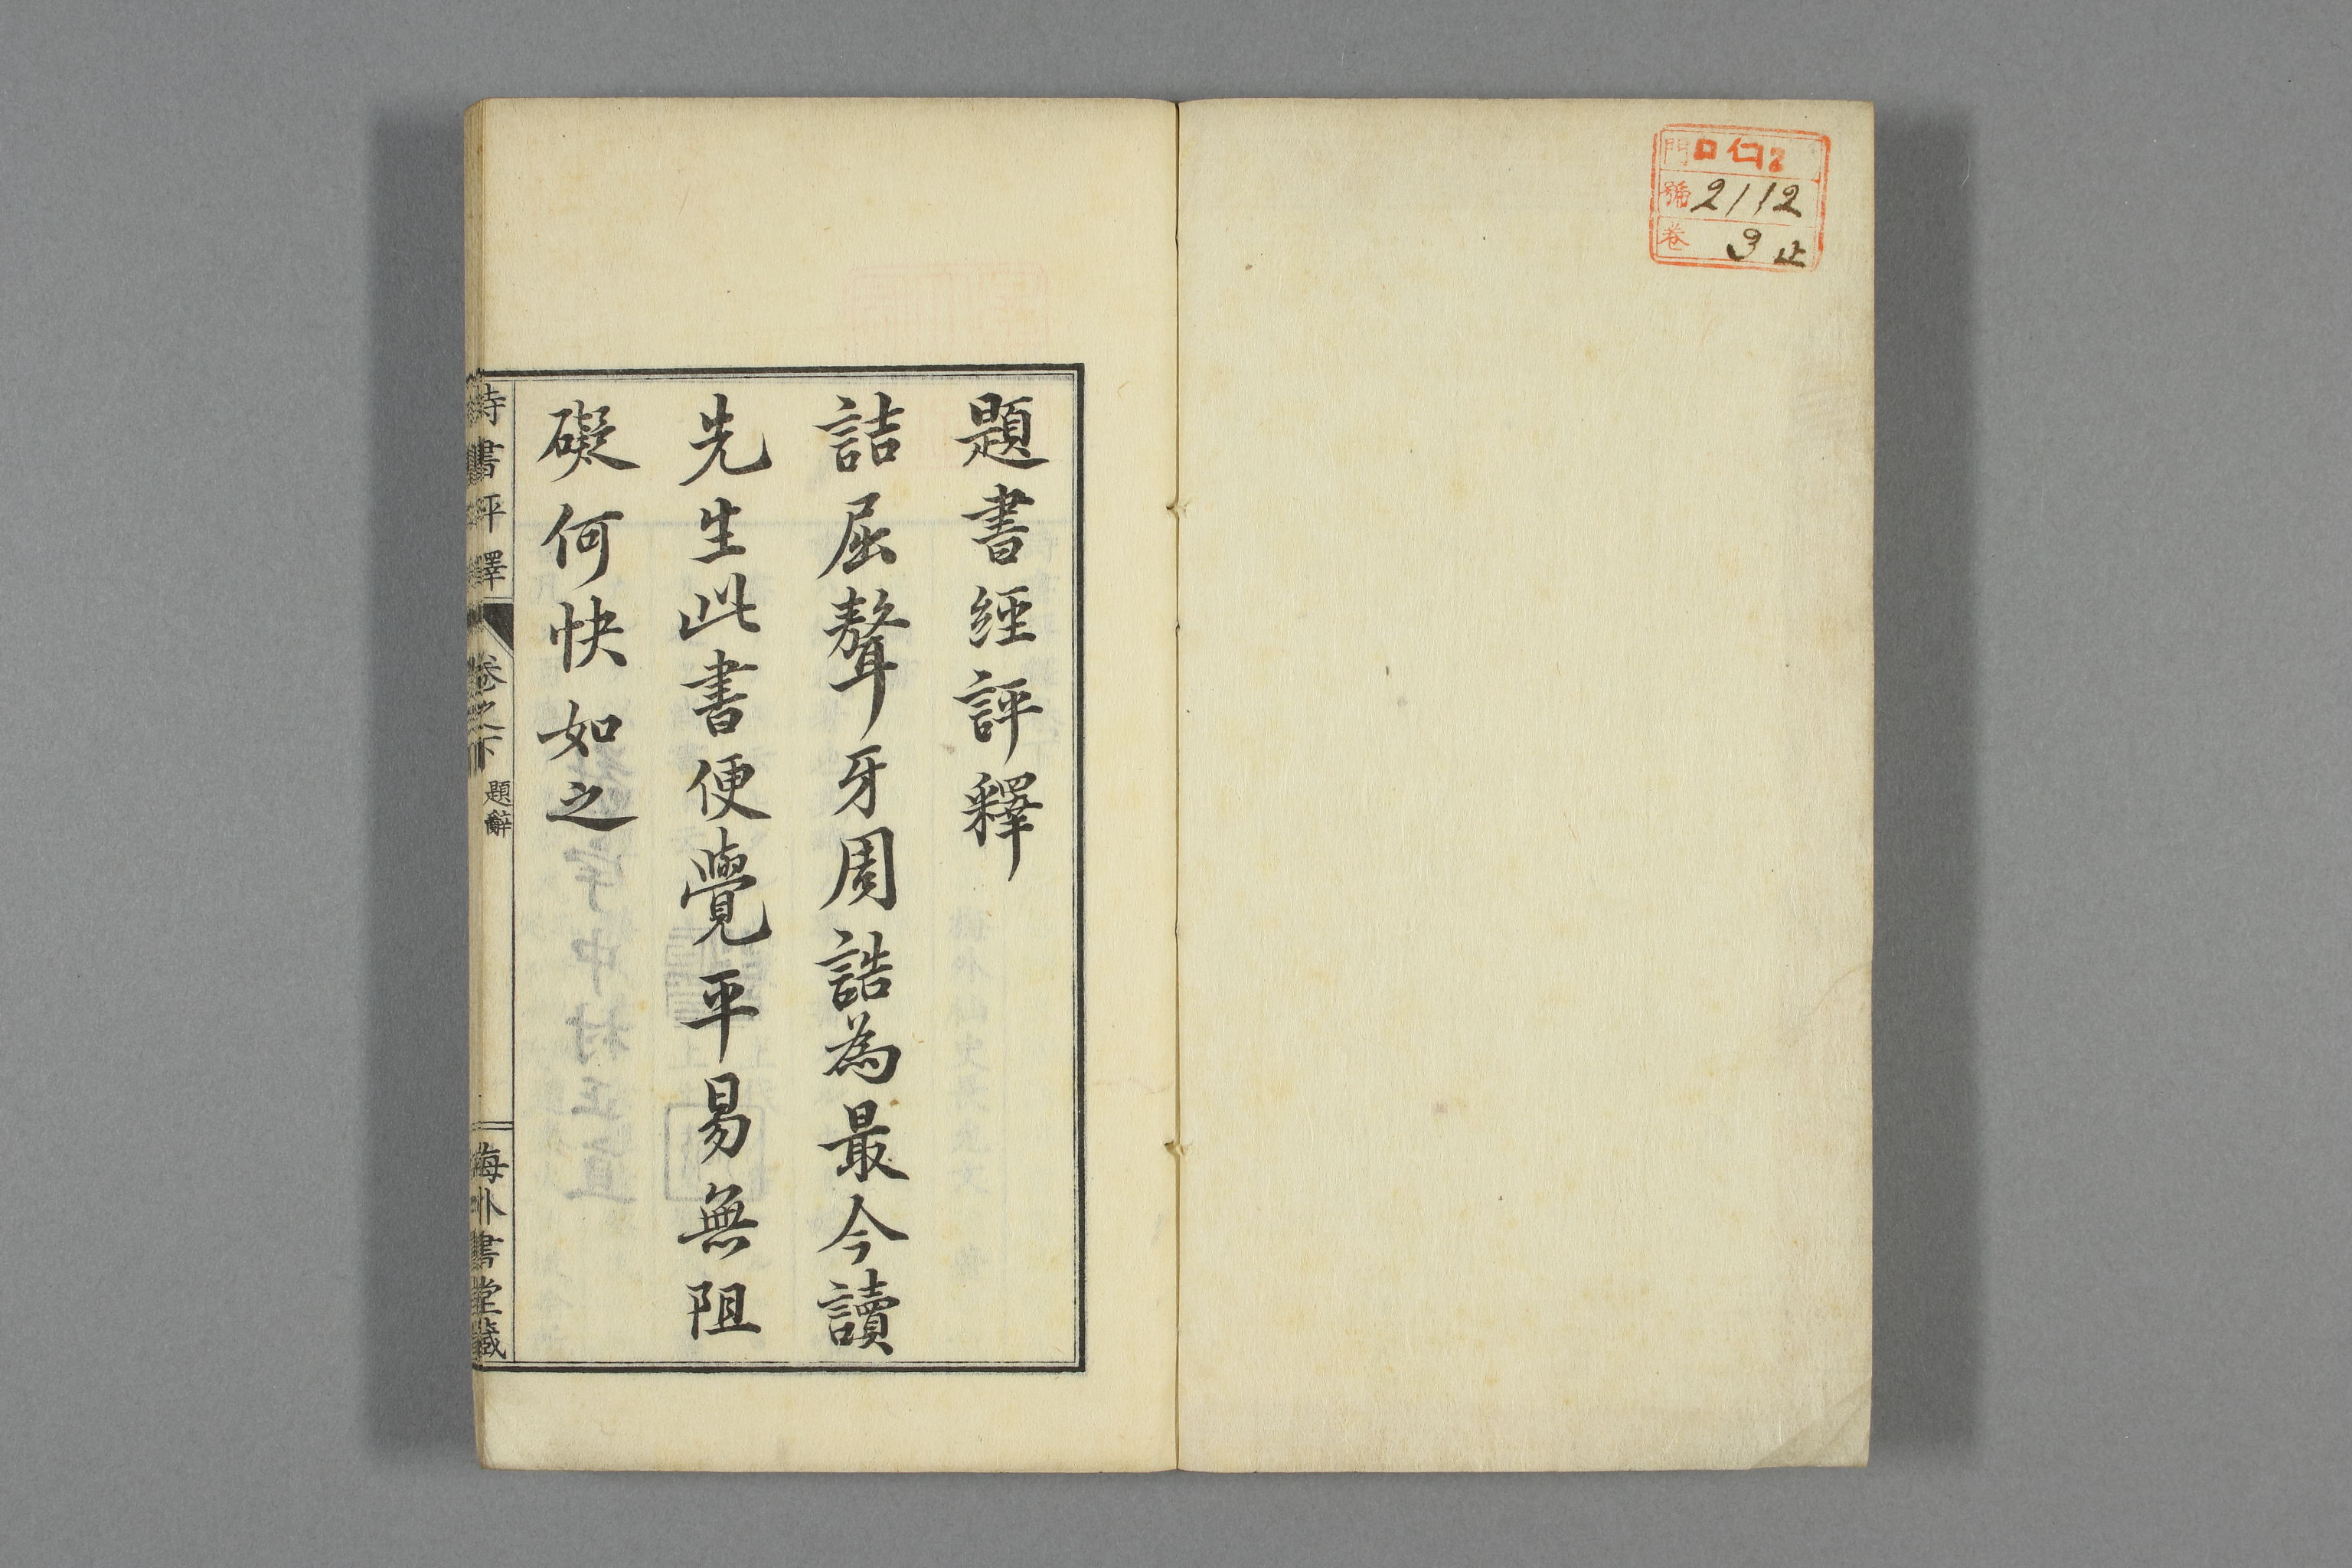 門 ロ仁2
號 2112
卷 3止
題書經評釋
詰屈聱牙周誥為最今讀
先生此書便覺平易無阻
礙何快如之
詩書評釋
卷之下
題辭
海外書堂藏